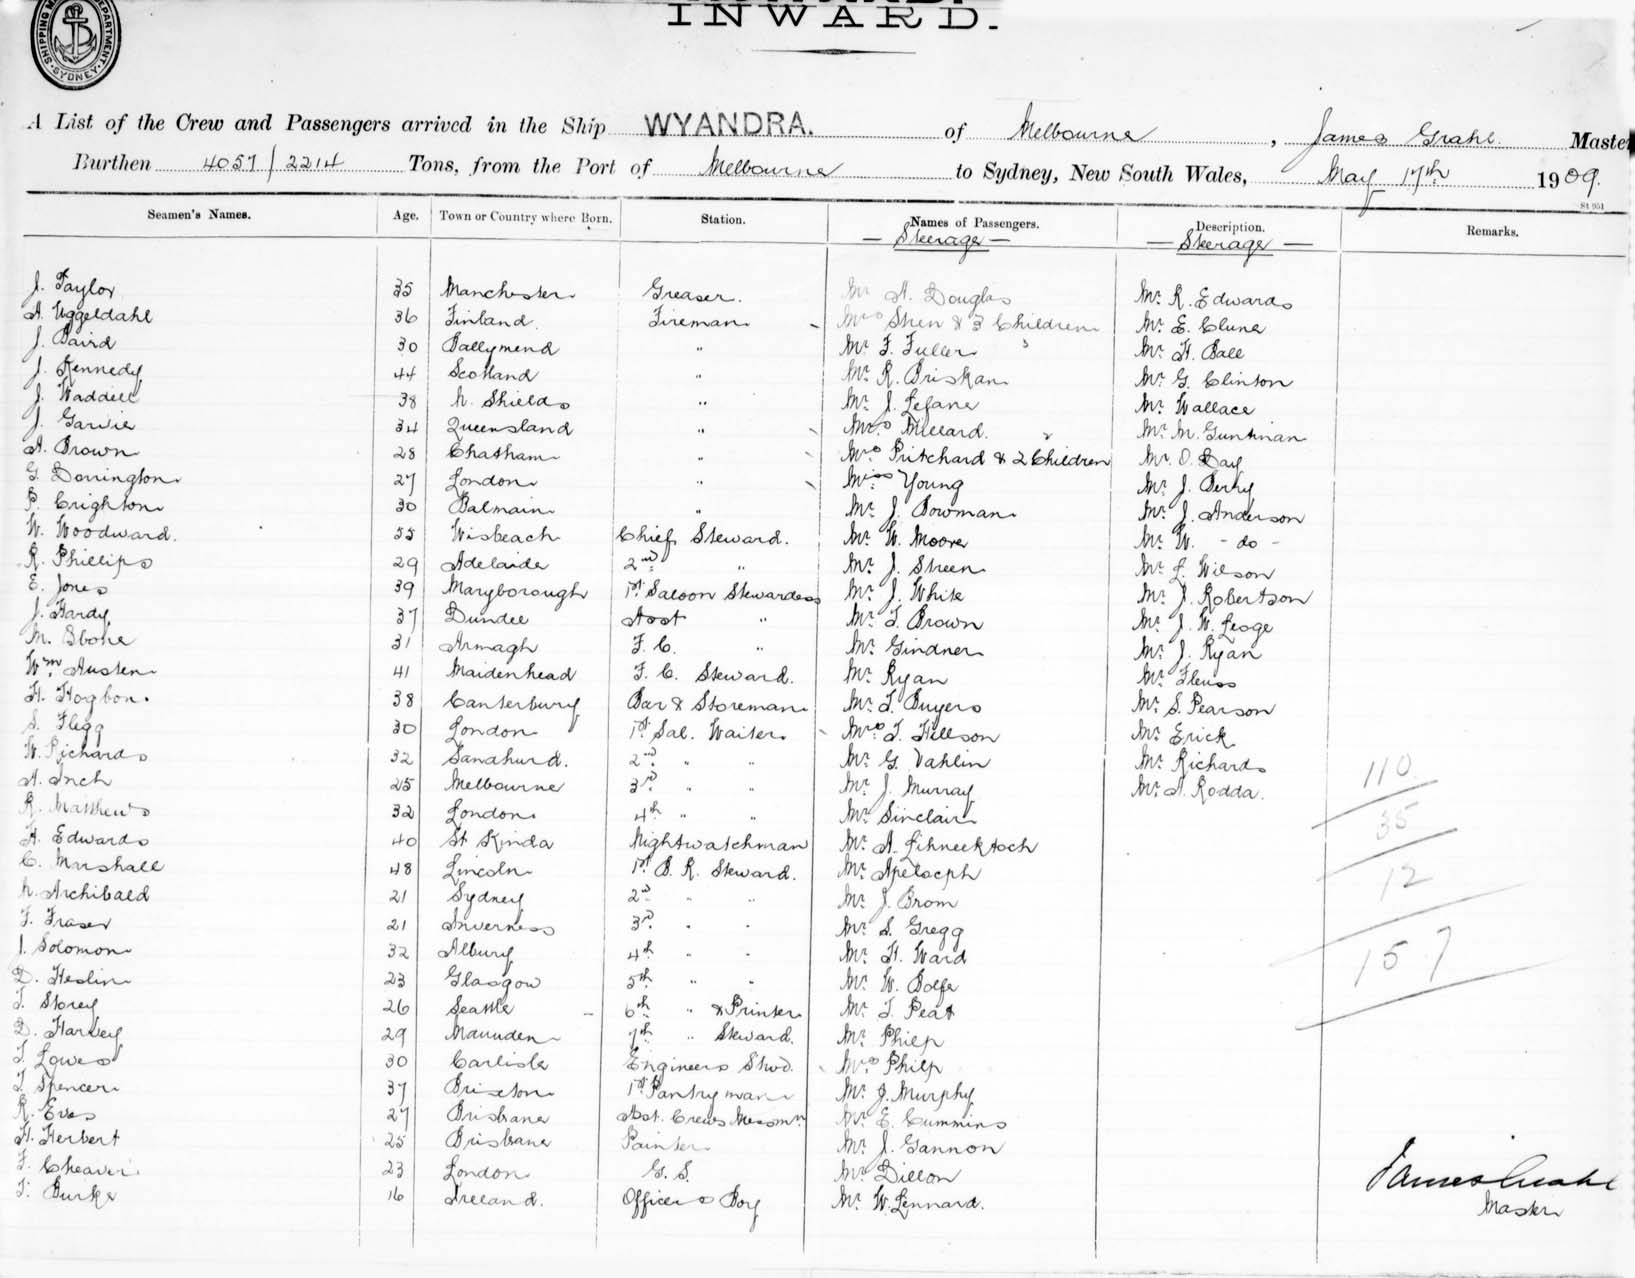 INWARD.
SHIPPING DEPARTMENT SYDNEY
A List of the Crew and Passengers arrived in the Ship WYANDRA. of Melbourne, James Grahl. Master
Burthen 4057/2214 Tons, from the Port of Melbourne to Sydney, New South Wales, May 17th 1909.
St 951
Seamen's Names. Age. Town or Country where Born. Station. Names of Passengers. Description. Remarks.
— Steerage — — Steerage —
J. Taylor 35 Manchester Greaser. Mr A. Douglas Mr. R. Edwards
A. Uggeldahl 36 Finland. Fireman Mrs Shen & 3 Children Mr. E. Clune
J. Baird 30 Ballymend " Mr. F. Fuller Mr. H. Ball
J. Kennedy 44 Scotland " Mr. R. Briskan Mr. G. Clinton
J. Waddell 38 N. Shields " Mr. J. Lefane Mr. Wallace
J. Garvie 34 Queensland " Mrs Millard. Mr. M. Guntman
A. Brown 28 Chatham " Mrs Pritchard & 2 Children Mr. D. Day
G. Dorrington 27 London " Miss Young Mr. J. Berky
P. Crighton 30 Balmain " Mr. J. Bowman Mr. J. Anderson
W. Woodward. 55 Wisbeach Chief Steward. Mr. W. Moore Mr. W. - do -
R. Phillips 29 Adelaide 2nd " Mr. J. Streen Mr. L. Wilson
E. Jones 39 Maryborough 1st Saloon Stewardess Mr. J. White Mr. J. Robertson
J. Hardy 37 Dundee Asst " Mr. T. Brown Mr. J. W. Leoge
M. Ebone 31 Armagh F. C. " Mr. Gindner Mr. J. Ryan
Wm Austen 41 Maidenhead F. C. Steward. Mr. Ryan Mr. Fleuss
H. Hogbon. 38 Canterbury Bar & Storeman Mr. T. Buyers Mr. S. Pearson
S. Flegg 30 London 1st Sal. Waiter. Mrs. T. Hillson Mr. Erick
W. Richards 32 Sandhurd. 2nd " " Mr. G. Vahlin Mr. Richards
A. Inch 25 Melbourne 3rd " " Mr. J. Murray Mr. A. Rodda.
R. Matthews 32 London 4th " " Mr. Sinclair
H. Edwards 40 St Kinda Nightwatchman Mr. A.
C. Marshall 48 Lincoln 1st B. R. Steward. Mr.
N. Archibald 21 Sydney 2nd " " Mr. J. Brom
F. Fraser 21 Inverness 3rd " " Mr. S. Gregg
J. Solomon 32 Albury 4th " " Mr. H. Ward
D. Heslin 23 Glasgow 5th " " Mr. W. Bolfe
T. Storey 26 Seattle 6th " & Printer Mr. T. Peat
D. Harvey 29 Manuden 7th " Steward. Mr. Philp
T. Lowes 30 Carlisle Engineers Stwd. Mrs Philp
T. Spencer 37 Brixton 1st Pantryman Mr. J. Murphy
R. Eves 27 Brisbane Asst. Crews Messmn Mr. E. Cummins
H. Herbert 25 Brisbane Painter Mr. J. Gannon
F. Cheaver 23 London G. S. Mr. Dillon
T. Burke 16 Ireland. Officers Boy Mr. W. Lennard.
110
35
12
157
James Grahl
Master